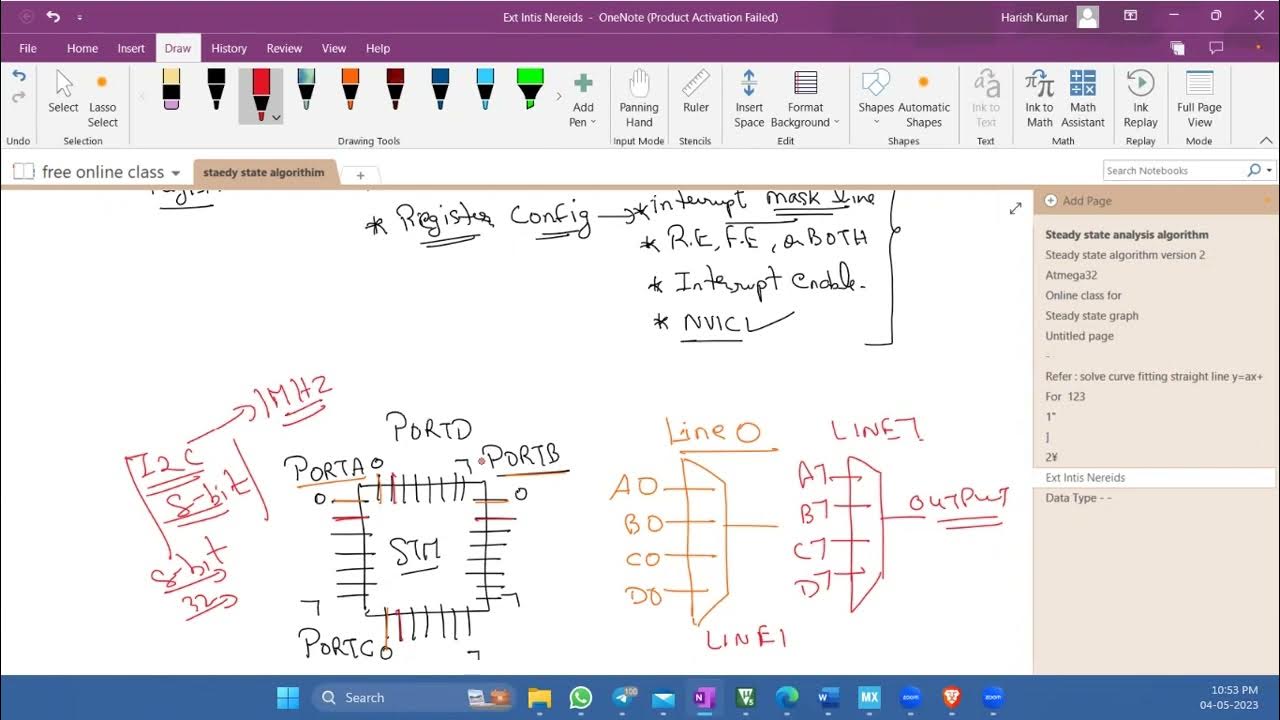 Ext Intis Nereids - OneNote (Product Activation Failed)
Harish Kumar
File Home Insert Draw History Review View Help
Select
Lasso Select
Add Pen
Panning Hand
Ruler
Insert Space
Format Background
Shapes
Automatic Shapes
Ink to Text
Ink to Math
Math Assistant
Ink Replay
Full Page View
Undo Selection Drawing Tools Input Mode Stencils Edit Shapes Text Math Replay Mode
free online class
staedy state algorithim
+
Search Notebooks
* Register Config → * interrupt mask line
* R.E, F.E, or BOTH
* Interrupt Enable.
* NVIC
Add Page
Steady state analysis algorithm
Steady state algorithm version 2
Atmega32
Online class for
Steady state graph
Untitled page
-
Refer : solve curve fitting straight line y=ax+
For 123
1"
]
2¥
Ext Intis Nereids
Data Type - -
1MHZ
I2C
8-bit
8-bit
32
PORTD
PORTA 0 7 PORTB
0 0
STM
7 7
PORTC 0 7
Line 0
A0
B0
C0
D0
LINE1
LINE7
A7
B7
C7
D7
OUTPUT
Search
100
zoom
W
MX
zoom
zoom
10:53 PM
04-05-2023